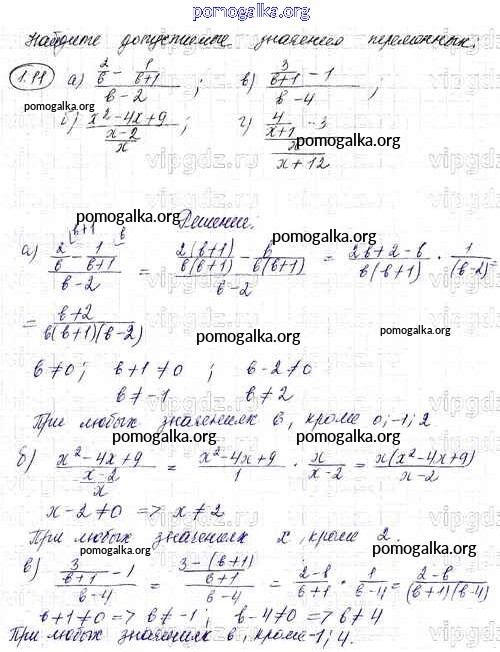 pomogalka.org
Найдите допустимые значения переменных:
1.11 а) (2/b - 1/(b+1))/(b-2) ; в) (3/(b+1) - 1)/(b-4) ;
pomogalka.org pomogalka.org
б) (x²-4x+9)/((x-2)/x) ; г) (4/(x+1) - 3)/(x/(x+12))
vipgdz.ru
pomogalka.org
Решение:
а) (2/b - 1/(b+1))/(b-2) = (2(b+1)/(b(b+1)) - b/(b(b+1)))/(b-2) = (2b+2-b)/(b(b+1)) · 1/(b-2) =
= (b+2)/(b(b+1)(b-2))
pomogalka.org pomogalka.org
b≠0; b+1≠0 ; b-2≠0
b≠-1 b≠2
При любых значениях b, кроме 0;-1;2
pomogalka.org pomogalka.org
б) (x²-4x+9)/((x-2)/x) = (x²-4x+9)/1 · x/(x-2) = x(x²-4x+9)/(x-2)
x-2≠0 => x≠2
При любых значениях x, кроме 2.
pomogalka.org pomogalka.org
в) (3/(b+1) - 1)/(b-4) = ((3-(b+1))/(b+1))/(b-4) = (2-b)/(b+1) · 1/(b-4) = (2-b)/((b+1)(b-4))
b+1≠0 => b≠-1 ; b-4≠0 => b≠4
При любых значениях b, кроме -1; 4.
pomogalka.org